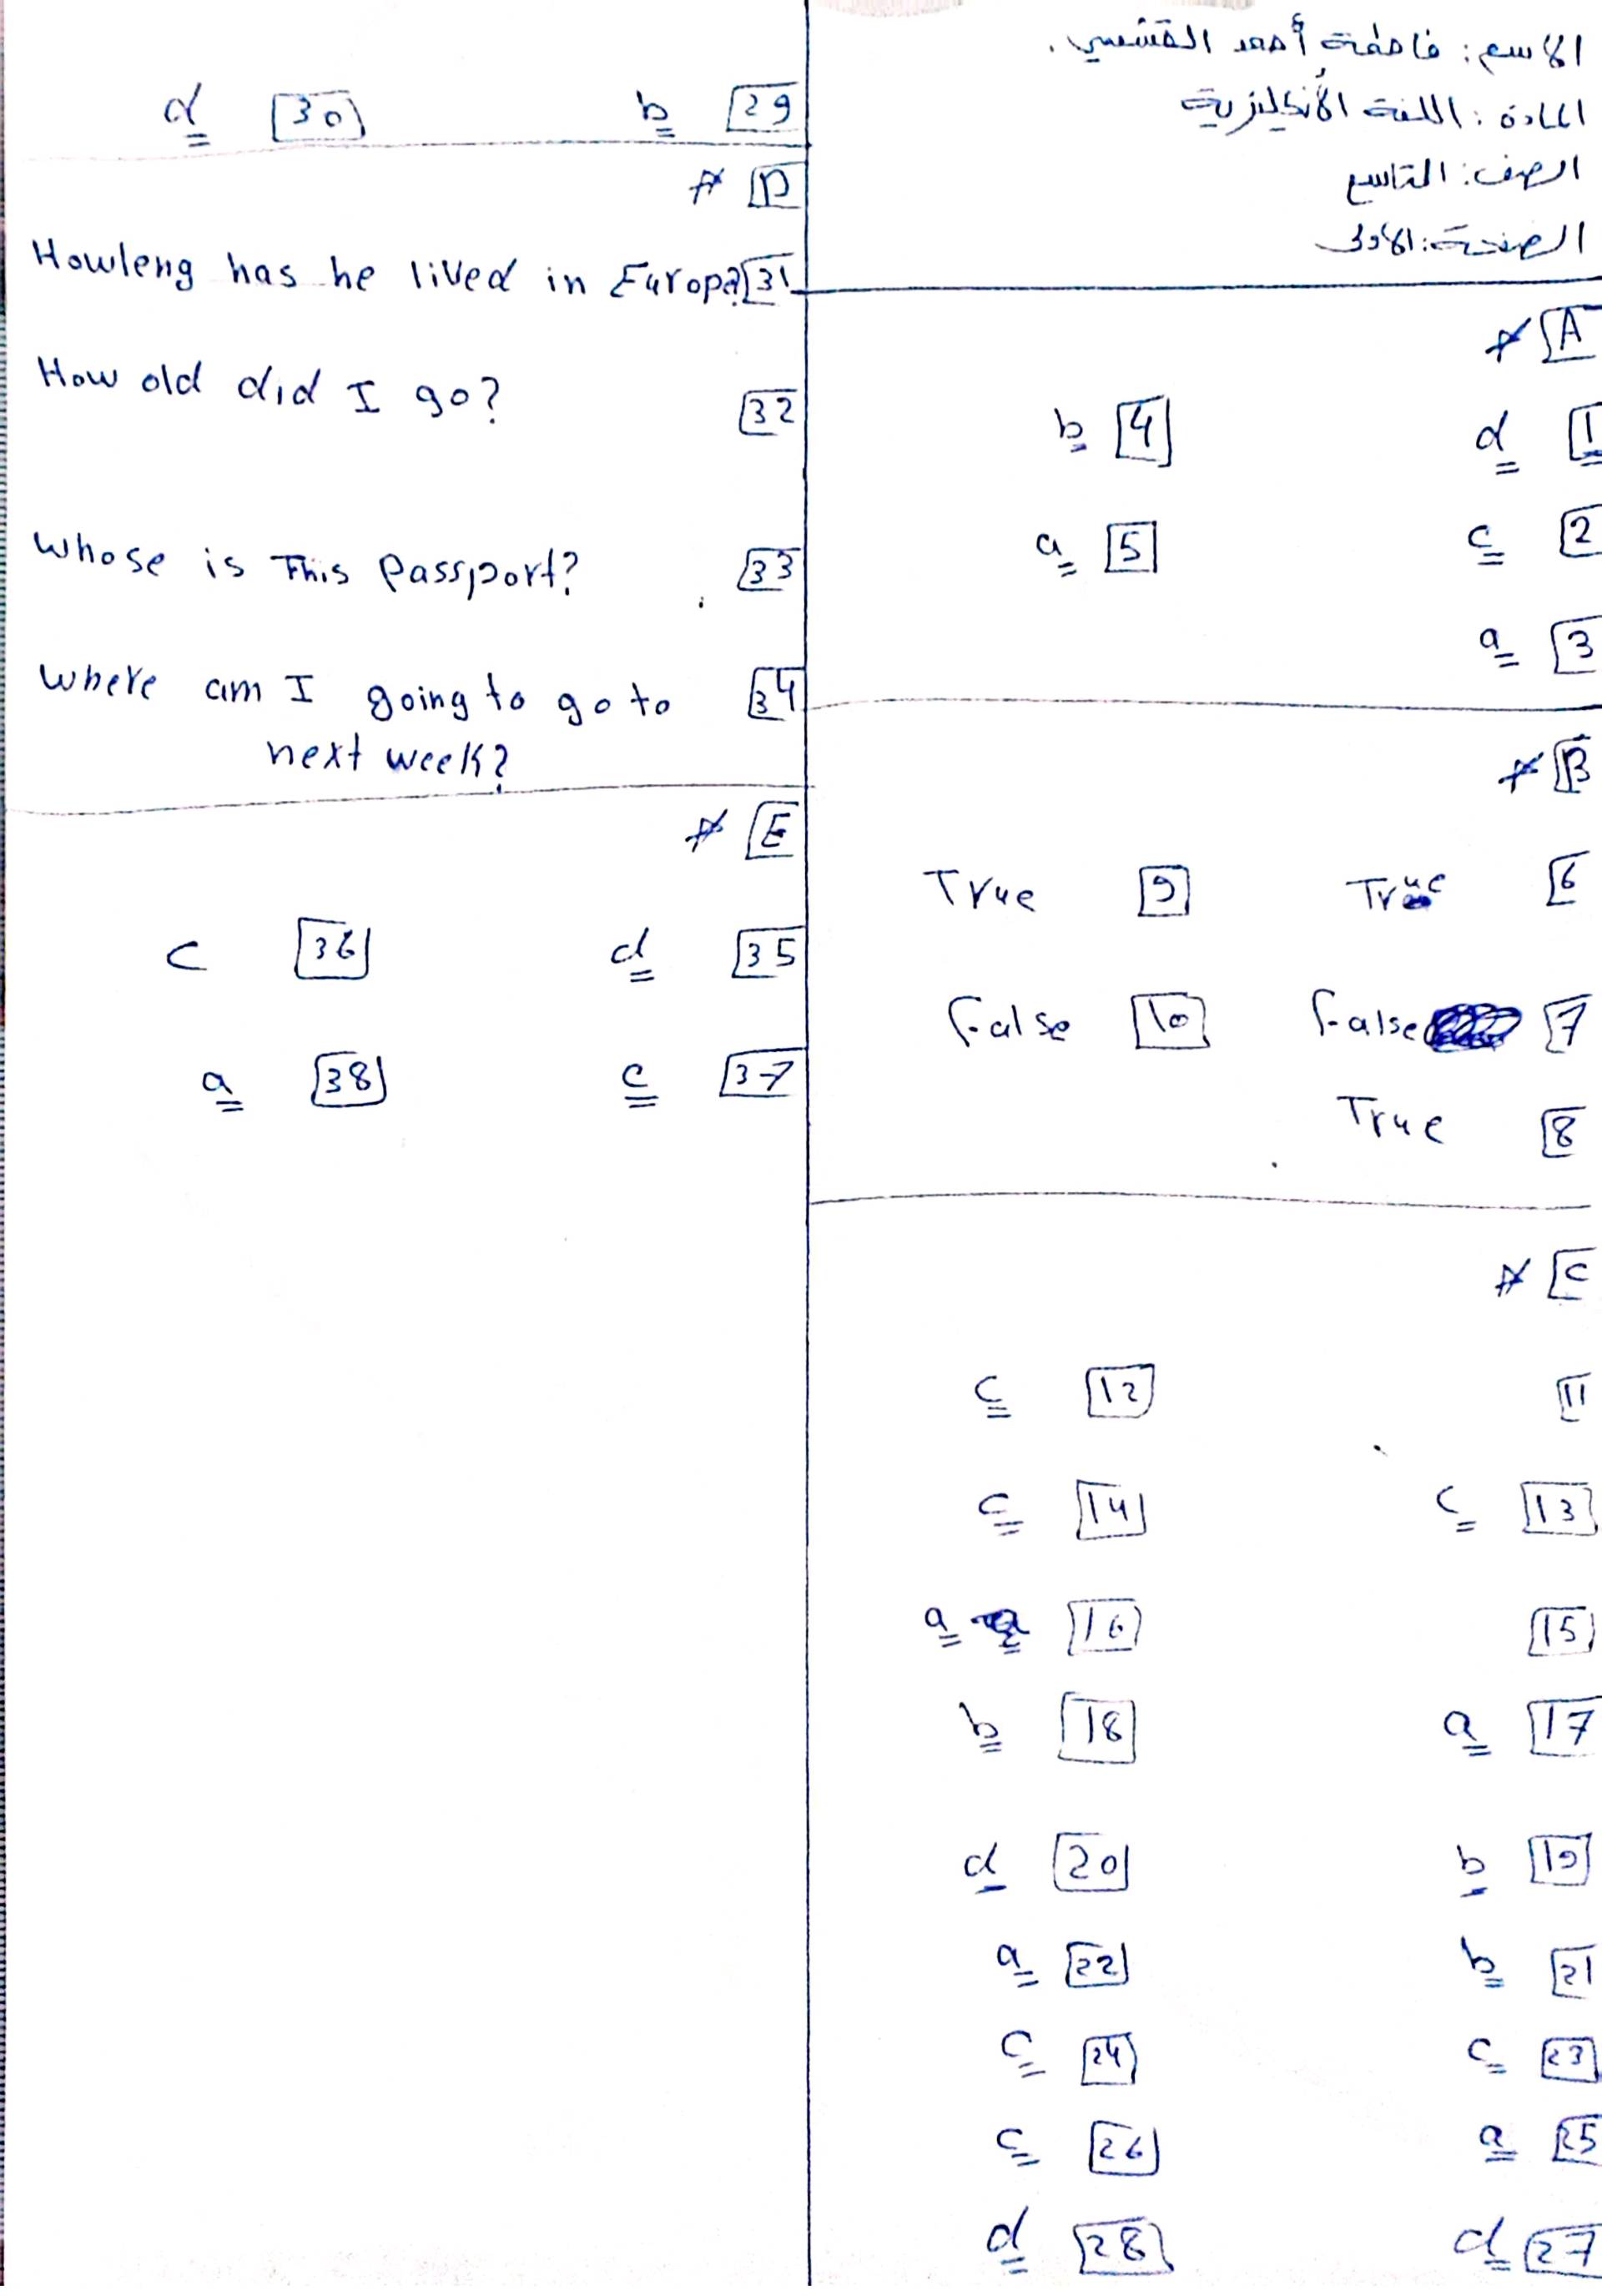 الاسم: فاطمة أحمد القشمسي.
المادة: اللغة الأنكليزية
الصف: التاسع
الصفحة: الأولى
* A
1 d 4 b
2 c 5 a
3 a
* B
6 True 9 True
7 False 10 False
8 True
* C
11 12 c
13 c 14 c
15 16 a
17 a 18 b
19 b 20 d
21 b 22 a
23 c 24 c
25 a 26 c
27 d 28 d
29 b 30 d
* D
31 Howleng has he lived in Europe?
32 How old did I go?
33 Whose is This Passport?
34 Where am I going to go to
next week?
* E
35 d 36 c
37 c 38 a